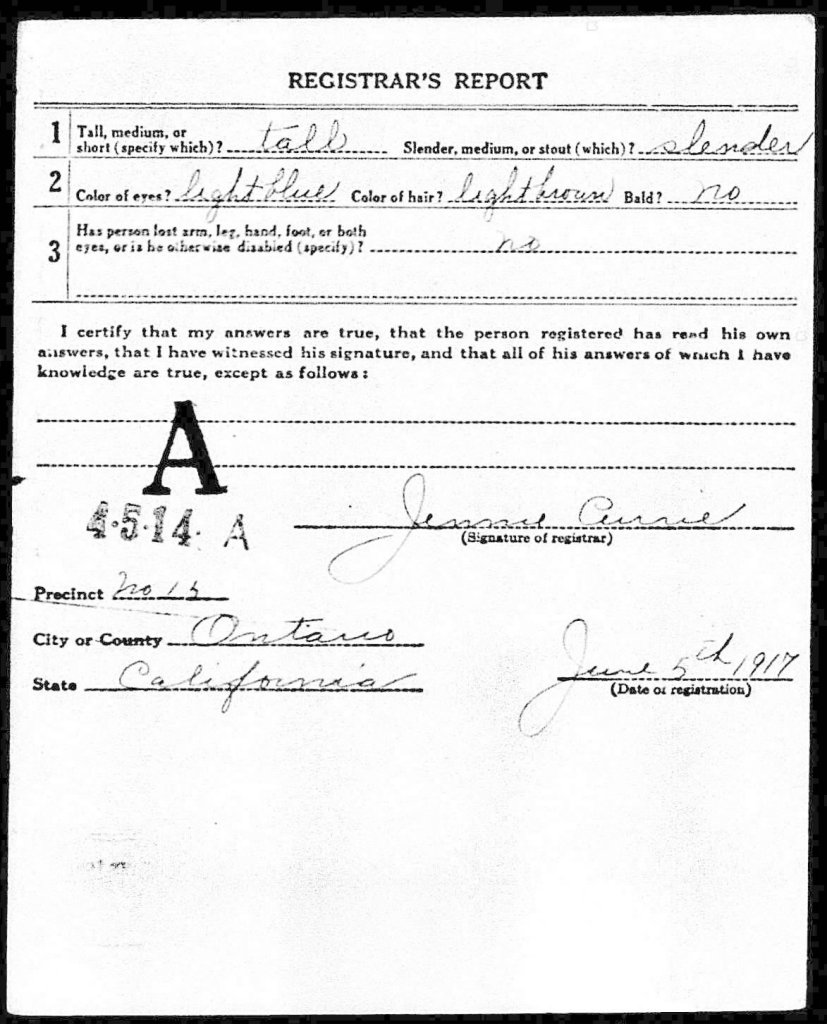 REGISTRAR'S REPORT
1 Tall, medium, or short (specify which)? tall Slender, medium, or stout (which)? slender
2 Color of eyes? light blue Color of hair? light brown Bald? no
3 Has person lost arm, leg, hand, foot, or both
eyes, or is he otherwise disabled (specify)? no
I certify that my answers are true, that the person registered has read his own
answers, that I have witnessed his signature, and that all of his answers of which I have
knowledge are true, except as follows:
A
4-5-14. A
Jennie Currie
(Signature of registrar)
Precinct No 13
City or County Ontario
State California
June 5th 1917
(Date of registration)